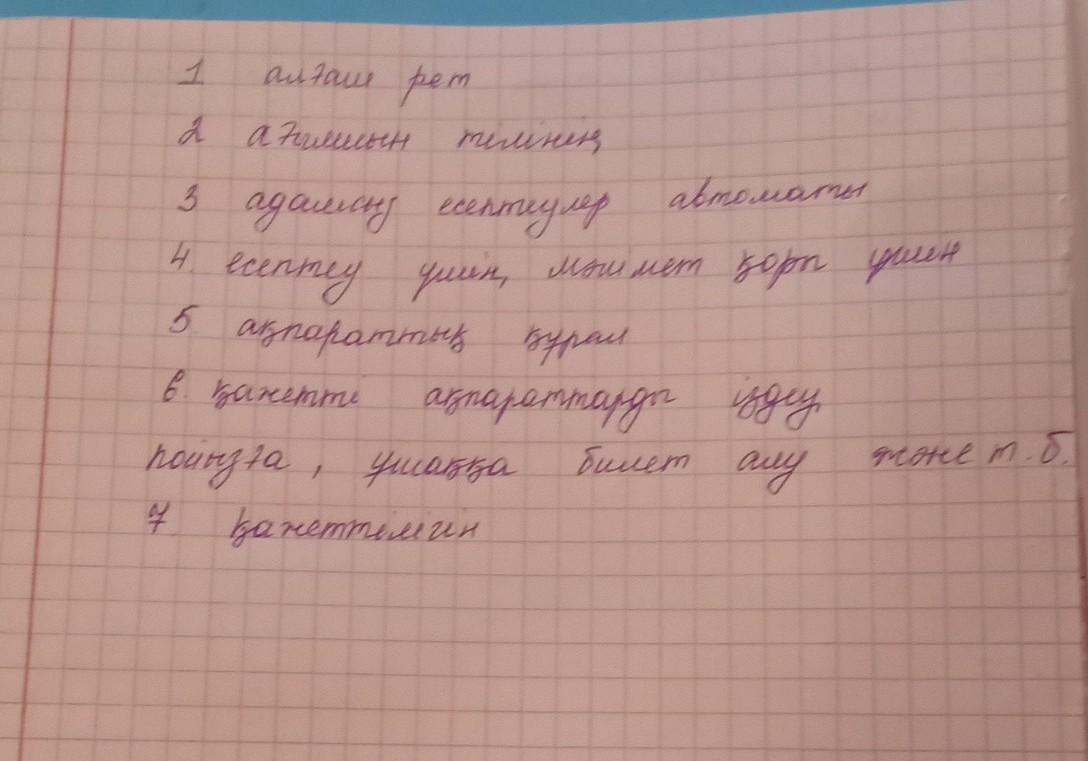 1 алғаш рет
2 ағылшын тілінің
3 адамсыз есептеулер автоматы
4. есептеу үшін, мәлімет қоры үшін
5. ақпараттық құрал
6. қажетті ақпараттарды іздеу,
пойызға, ұшаққа билет алу және т.б.
7. қажеттілігін